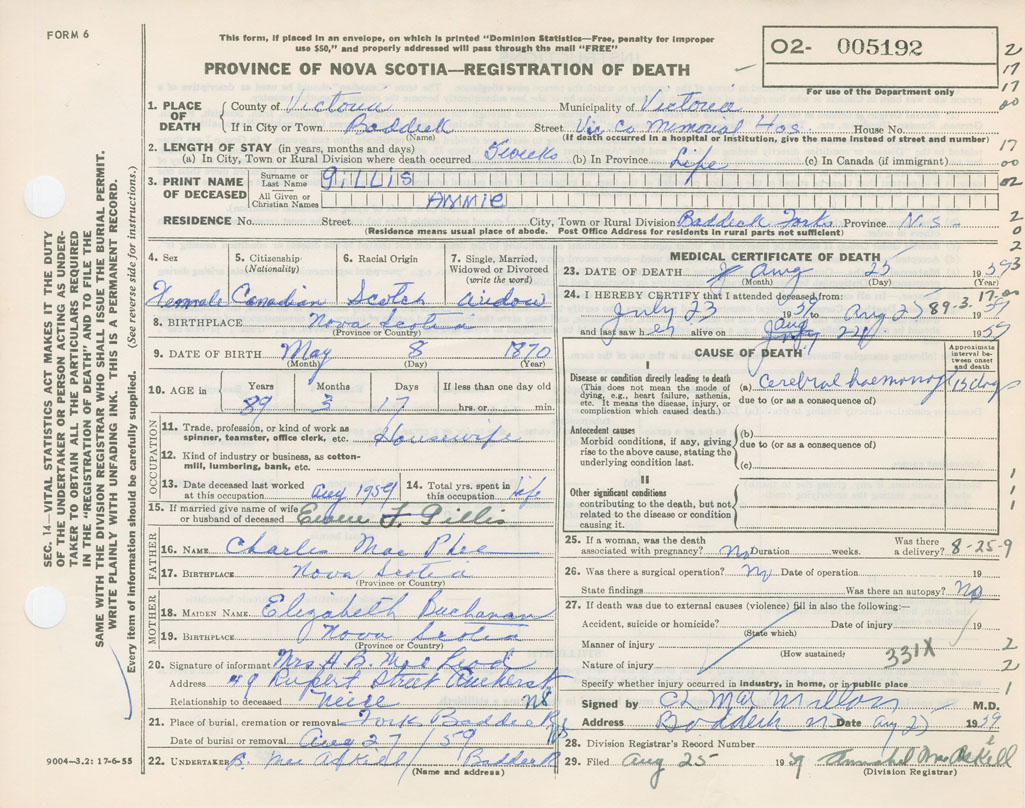 FORM 6
This form, if placed in an envelope, on which is printed "Dominion Statistics—Free, penalty for improper
use $50," and properly addressed will pass through the mail "FREE"
PROVINCE OF NOVA SCOTIA—REGISTRATION OF DEATH
O2- 005192
For use of the Department only
1. PLACE OF DEATH
County of Victoria Municipality of Victoria
If in City or Town Baddeck Street Vic. Co Memorial Hos House No.
(Name) (If death occurred in a hospital or institution, give the name instead of street and number)
2. LENGTH OF STAY (in years, months and days)
(a) In City, Town or Rural Division where death occurred 5 weeks (b) In Province Life (c) In Canada (if immigrant)
3. PRINT NAME OF DECEASED
Surname or Last Name GILLIS
All Given or Christian Names ANNIE
RESIDENCE No. Street City, Town or Rural Division Baddeck Forks Province N.S.
(Residence means usual place of abode. Post Office Address for residents in rural parts not sufficient)
4. Sex Female
5. Citizenship (Nationality) Canadian
6. Racial Origin Scotch
7. Single, Married, Widowed or Divorced (write the word) Widow
8. BIRTHPLACE Nova Scotia
(Province or Country)
9. DATE OF BIRTH May 8 1870
(Month) (Day) (Year)
10. AGE in Years Months Days If less than one day old
89 3 17 hrs. or min.
OCCUPATION
11. Trade, profession, or kind of work as
spinner, teamster, office clerk, etc. Housewife
12. Kind of industry or business, as cotton-
mill, lumbering, bank, etc.
13. Date deceased last worked at this occupation Aug 1959 14. Total yrs. spent in this occupation Life
15. If married give name of wife
or husband of deceased F. Gillis
FATHER
16. NAME Charles Mac Phee
17. BIRTHPLACE Nova Scotia
(Province or Country)
MOTHER
18. MAIDEN NAME Elizabeth Buchanan
19. BIRTHPLACE Nova Scotia
(Province or Country)
20. Signature of informant Mrs. H. B. Mac Leod
Address 49 Rupert Street Amherst
Relationship to deceased Neice NS
21. Place of burial, cremation or removal Fork Baddeck NS
Date of burial or removal Aug 27 / 59
22. UNDERTAKER B. Mac Askill Baddeck
(Name and address)
9004—3.2: 17-6-55
MEDICAL CERTIFICATE OF DEATH
23. DATE OF DEATH Aug 25 1959
(Month) (Day) (Year)
24. I HEREBY CERTIFY that I attended deceased from:
July 23 1959 to Aug 25 1959
89-3-17-00
and last saw her alive on Aug 24 1959
CAUSE OF DEATH
Approximate interval between onset and death
I
Disease or condition directly leading to death
(This does not mean the mode of
dying, e.g., heart failure, asthenia,
etc. It means the disease, injury, or
complication which caused death.)
(a) Cerebral haemorrage 15 days
due to (or as a consequence of)
Antecedent causes
Morbid conditions, if any, giving
rise to the above cause, stating the
underlying condition last.
(b)
due to (or as a consequence of)
(c)
II
Other significant conditions
contributing to the death, but not
related to the disease or condition
causing it.
25. If a woman, was the death Was there
associated with pregnancy? No Duration weeks. a delivery?
8-25-9
26. Was there a surgical operation? No Date of operation 19
State findings Was there an autopsy? No
27. If death was due to external causes (violence) fill in also the following:—
Accident, suicide or homicide? Date of injury 19
(State which)
Manner of injury
(How sustained)
331X
Nature of injury
Specify whether injury occurred in industry, in home, or in public place
Signed by C L Mac Millan M.D.
Address Baddeck Date Aug 25 1959
28. Division Registrar's Record Number
29. Filed Aug 25 1959 Annabel MacAskill
(Division Registrar)
SEC. 14—VITAL STATISTICS ACT MAKES IT THE DUTY
OF THE UNDERTAKER OR PERSON ACTING AS UNDER-
TAKER TO OBTAIN ALL THE PARTICULARS REQUIRED
IN THE "REGISTRATION OF DEATH" AND TO FILE THE
SAME WITH THE DIVISION REGISTRAR WHO SHALL ISSUE THE BURIAL PERMIT.
WRITE PLAINLY WITH UNFADING INK. THIS IS A PERMANENT RECORD.
Every item of information should be carefully supplied. (See reverse side for instructions.)
2
17
17
00
17
02
2
0
2
3
1
1
1
2
2
1
2